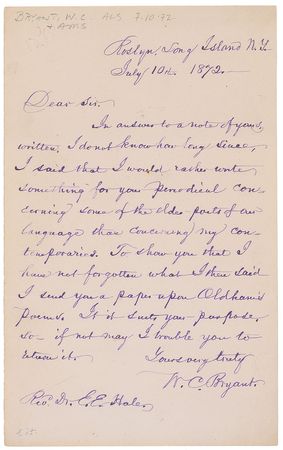 BRYANT, W.C. ALS 7.10.72
+ AMS
Roslyn, Long Island N.Y.
July 10th. 1872.
Dear Sir.
In answer to a note of yours,
written, I do not know how long since,
I said that I would rather write
something for your periodical con-
cerning some of the older poets of our
language than concerning my con-
temporaries. To show you that I
have not forgotten what I then said
I send you a paper upon Oldham's
poems. If it suits your purpose,
so - if not may I trouble you to
return it.
Yours very truly
W. C. Bryant.
Rev. Dr. E. E. Hale.